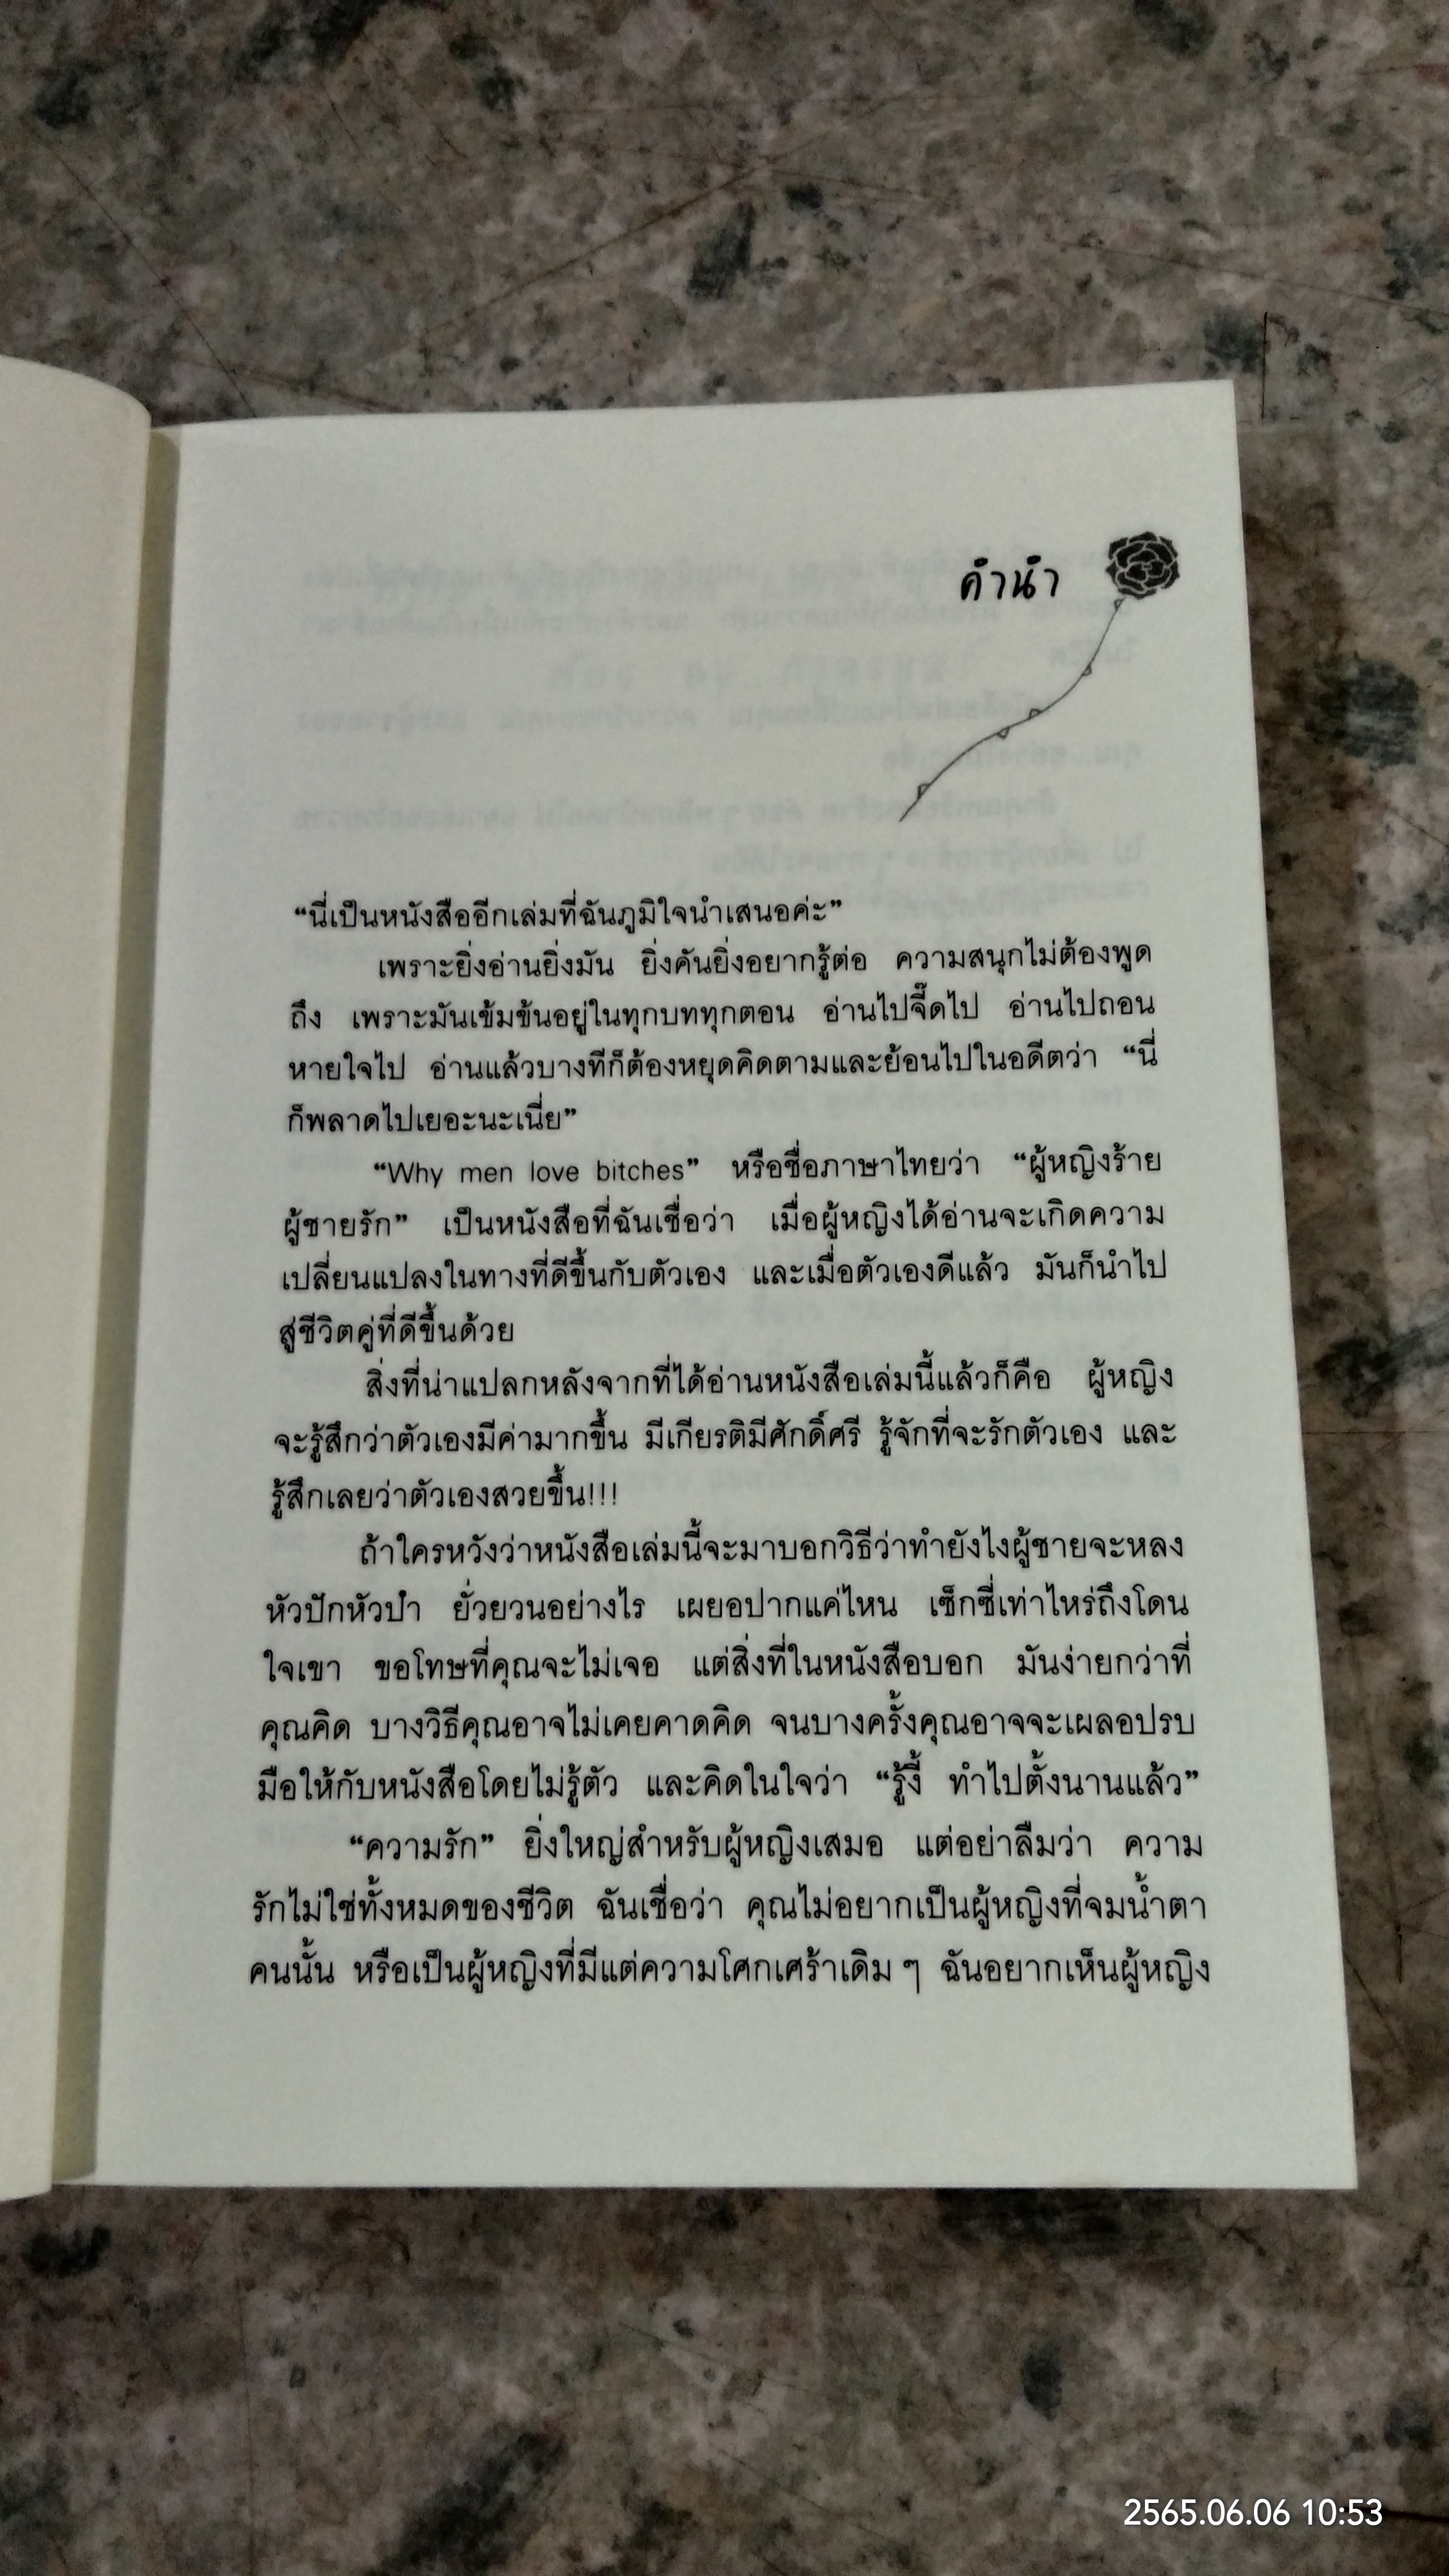 คำนำ
“นี่เป็นหนังสืออีกเล่มที่ฉันภูมิใจนำเสนอค่ะ”
เพราะยิ่งอ่านยิ่งมัน ยิ่งคันยิ่งอยากรู้ต่อ ความสนุกไม่ต้องพูด
ถึง เพราะมันเข้มข้นอยู่ในทุกบททุกตอน อ่านไปจี๊ดไป อ่านไปถอน
หายใจไป อ่านแล้วบางทีก็ต้องหยุดคิดตามและย้อนไปในอดีตว่า “นี่
ก็พลาดไปเยอะนะเนี่ย”
“Why men love bitches” หรือชื่อภาษาไทยว่า “ผู้หญิงร้าย
ผู้ชายรัก” เป็นหนังสือที่ฉันเชื่อว่า เมื่อผู้หญิงได้อ่านจะเกิดความ
เปลี่ยนแปลงในทางที่ดีขึ้นกับตัวเอง และเมื่อตัวเองดีแล้ว มันก็นำไป
สู่ชีวิตคู่ที่ดีขึ้นด้วย
สิ่งที่น่าแปลกหลังจากที่ได้อ่านหนังสือเล่มนี้แล้วก็คือ ผู้หญิง
จะรู้สึกว่าตัวเองมีค่ามากขึ้น มีเกียรติมีศักดิ์ศรี รู้จักที่จะรักตัวเอง และ
รู้สึกเลยว่าตัวเองสวยขึ้น!!!
ถ้าใครหวังว่าหนังสือเล่มนี้จะมาบอกวิธีว่าทำยังไงผู้ชายจะหลง
หัวปักหัวปำ ยั่วยวนอย่างไร เผยอปากแค่ไหน เซ็กซี่เท่าไหร่ถึงโดน
ใจเขา ขอโทษที่คุณจะไม่เจอ แต่สิ่งที่ในหนังสือบอก มันง่ายกว่าที่
คุณคิด บางวิธีคุณอาจไม่เคยคาดคิด จนบางครั้งคุณอาจจะเผลอปรบ
มือให้กับหนังสือโดยไม่รู้ตัว และคิดในใจว่า “รู้งี้ ทำไปตั้งนานแล้ว”
“ความรัก” ยิ่งใหญ่สำหรับผู้หญิงเสมอ แต่อย่าลืมว่า ความ
รักไม่ใช่ทั้งหมดของชีวิต ฉันเชื่อว่า คุณไม่อยากเป็นผู้หญิงที่จมน้ำตา
คนนั้น หรือเป็นผู้หญิงที่มีแต่ความโศกเศร้าเดิม ๆ ฉันอยากเห็นผู้หญิง
2565.06.06 10:53